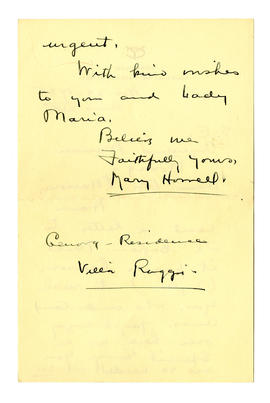 urgent.
With kind wishes
to you and Lady
Maria.
Believe me
Faithfully yours,
Mary Howell.
Genova - Residence
Villa Ruggi -